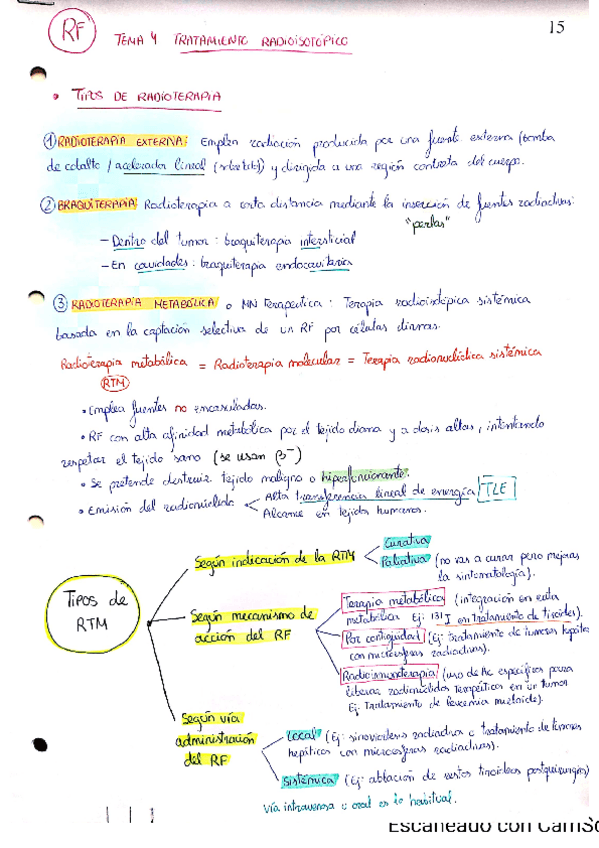 RF
15
TEMA 4 TRATAMIENTO RADIOISOTÓPICO
• TIPOS DE RADIOTERAPIA
① RADIOTERAPIA EXTERNA: Emplea radiación producida por una fuente externa (bomba
de cobalto / acelerador lineal (sobretodo) y dirigida a una región concreta del cuerpo.
② BRAQUITERAPIA: Radioterapia a corta distancia mediante la inserción de fuentes radiactivas:
"perlas"
- Dentro del tumor: braquiterapia intersticial
- En cavidades: braquiterapia endocavitaria
③ RADIOTERAPIA METABÓLICA o MN Terapeutica: Terapia radioisotópica sistémica
basada en la captación selectiva de un RF por células dianas.
Radioterapia metabólica = Radioterapia molecular = Terapia radionuclídica sistémica
RTM
• Emplea fuentes no encapsuladas.
• RF con alta afinidad metabólica por el tejido diana y a dosis altas, intentando
respetar el tejido sano (se usan β⁻)
• Se pretende destruir tejido maligno o hiperfuncionante.
• Emisión del radionúclido < Alta transferencia lineal de energía TLE
Alcance en tejido humanos.
TIPOS DE RTM
Según indicación de la RTM
Curativa
Paliativa (no vas a curar pero mejoras
la sintomatología).
Según mecanismo de
acción del RF
Terapia metabólica (integración en ruta
metabólica Ej: 131 I en tratamiento de tiroides).
Por contigüidad (Ej: tratamiento de tumores hepáticos
con microesferas radiactivas).
Radioinmunoterapia (uso de Ac específicos para
liberar radionúclidos terapéuticos en un tumor
Ej: Tratamiento de leucemia mieloide).
Según vía
administración
del RF
Local (Ej: sinoviortesis radiactiva o tratamiento de tumores
hepáticos con microesferas radiactivas).
Sistémica (Ej: ablación de restos tiroideos postquirúrgicos)
Vía intravenosa u oral es lo habitual.
Escaneado con CamSc